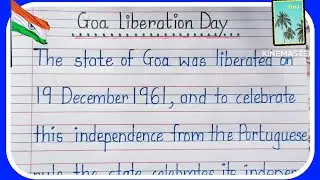 Goa Liberation Day
KINEMASTER
The state of Goa was liberated on
19 December 1961, and to celebrate
this independence from the Portuguese
rule the state celebrates its indepen